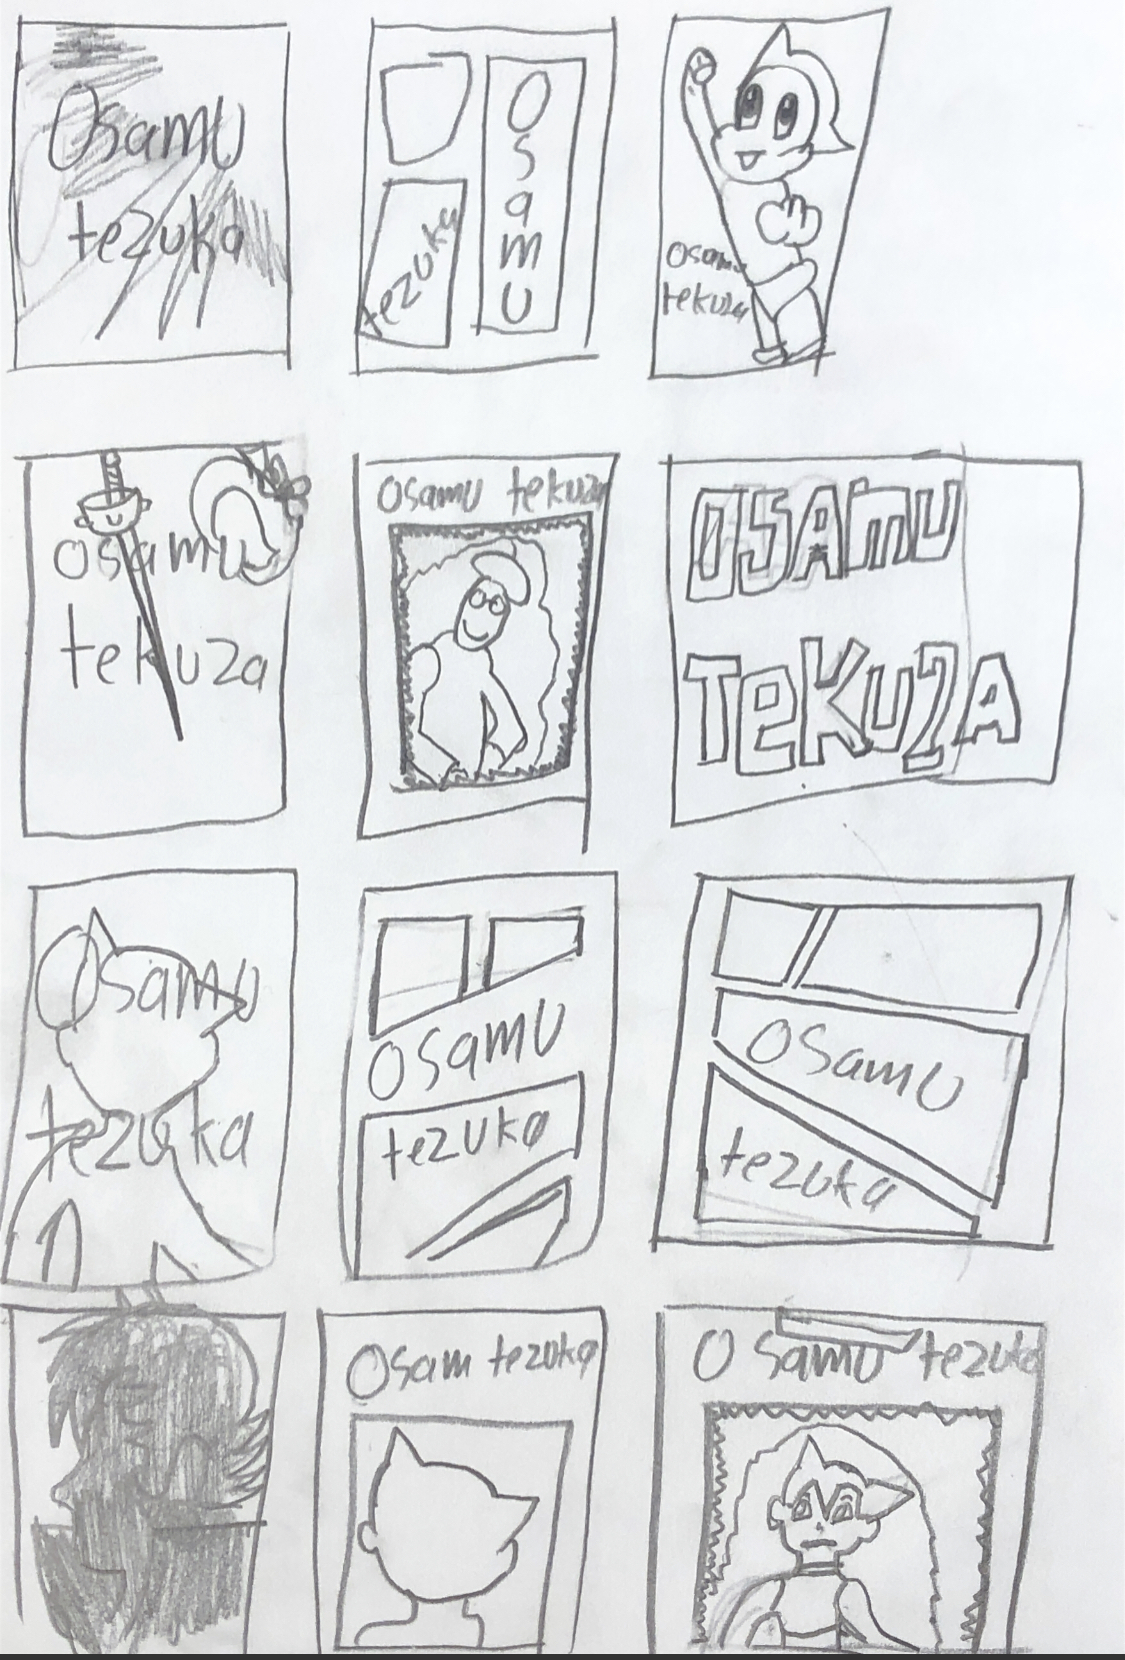 Osamu
tezuka
Osamu
tezuka
Osamu
tekuza
osamu
tekuza
osamu tekuza
OSAMU
TEKUZA
Osamu
tezuka
osamu
tezuka
osamu
tezuka
Osam tezuka
O samu tezuka